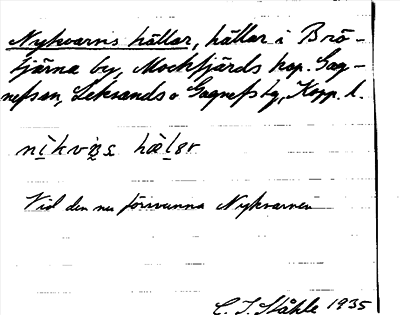 Nykvarns hällar, hällar i Brö-
tjärna by, Mockfjärds kap. Gag-
nefs sn, Leksands o Gagnefs tg, Kopp. l.
Vid den nu försvunna Nykvarnen
C. I. Ståhle 1935